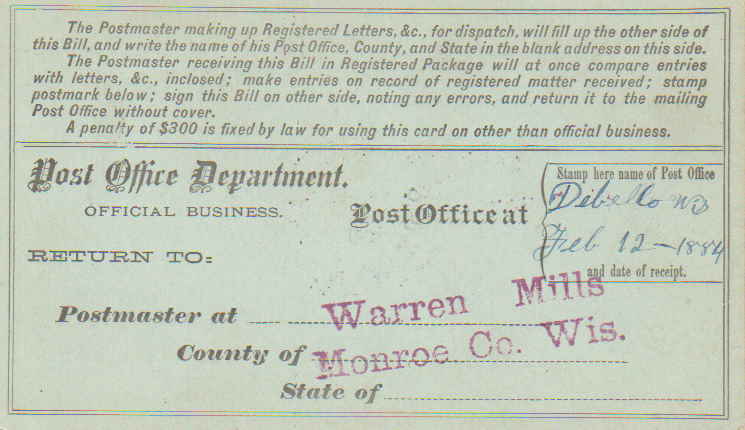 The Postmaster making up Registered Letters, &c., for dispatch, will fill up the other side of
this Bill, and write the name of his Post Office, County, and State in the blank address on this side.
The Postmaster receiving this Bill in Registered Package will at once compare entries
with letters, &c., inclosed; make entries on record of registered matter received; stamp
postmark below; sign this Bill on other side, noting any errors, and return it to the mailing
Post Office without cover.
A penalty of $300 is fixed by law for using this card on other than official business.
Post Office Department.
OFFICIAL BUSINESS.
Post Office at
Stamp here name of Post Office
Dibello
Feb 12-1884
and date of receipt.
RETURN TO:
Postmaster at Warren Mills
County of Monroe Co. Wis.
State of